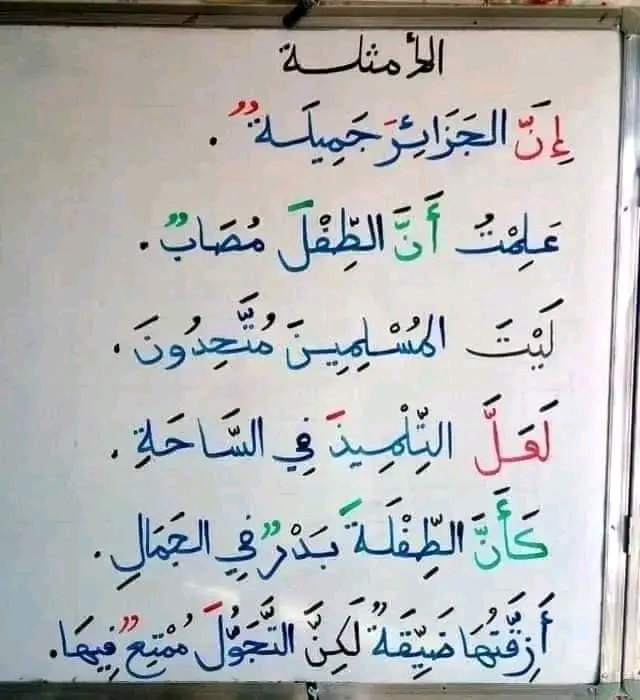 الأمثلة
إِنَّ الجَزَائِرَ جَمِيلَةٌ.
عَلِمْتُ أَنَّ الطِّفْلَ مُصَابٌ.
لَيْتَ المُسْلِمِينَ مُتَّحِدُونَ.
لَعَلَّ التِّلْمِيذَ فِي السَّاحَةِ.
كَأَنَّ الطِّفْلَةَ بَدْرٌ في الجَمَالِ.
أَزِقَّتُهَا ضَيِّقَةٌ لَكِنَّ التَّجَوُّلَ مُمْتِعٌ فِيهَا.